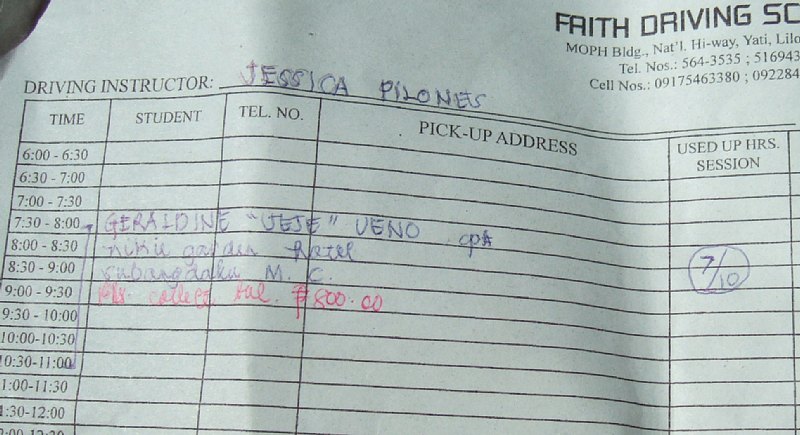 FAITH DRIVING SC
MOPH Bldg., Nat'l. Hi-way, Yati, Lilo
Tel. Nos.: 564-3535 ; 516943
Cell Nos.: 09175463380 ; 092284
DRIVING INSTRUCTOR: JESSICA PILONES
TIME STUDENT TEL. NO. PICK-UP ADDRESS USED UP HRS. SESSION
6:00 - 6:30
6:30 - 7:00
7:00 - 7:30
7:30 - 8:00 GERALDINE "JEJE" UENO
8:00 - 8:30 garden hotel cpA
8:30 - 9:00 subangdaku M. C. 7/10
9:00 - 9:30 Pls. collect bal. ₱800.00
9:30 - 10:00
10:00-10:30
10:30-11:00
1:00-11:30
1:30-12:00
2:00-12:30